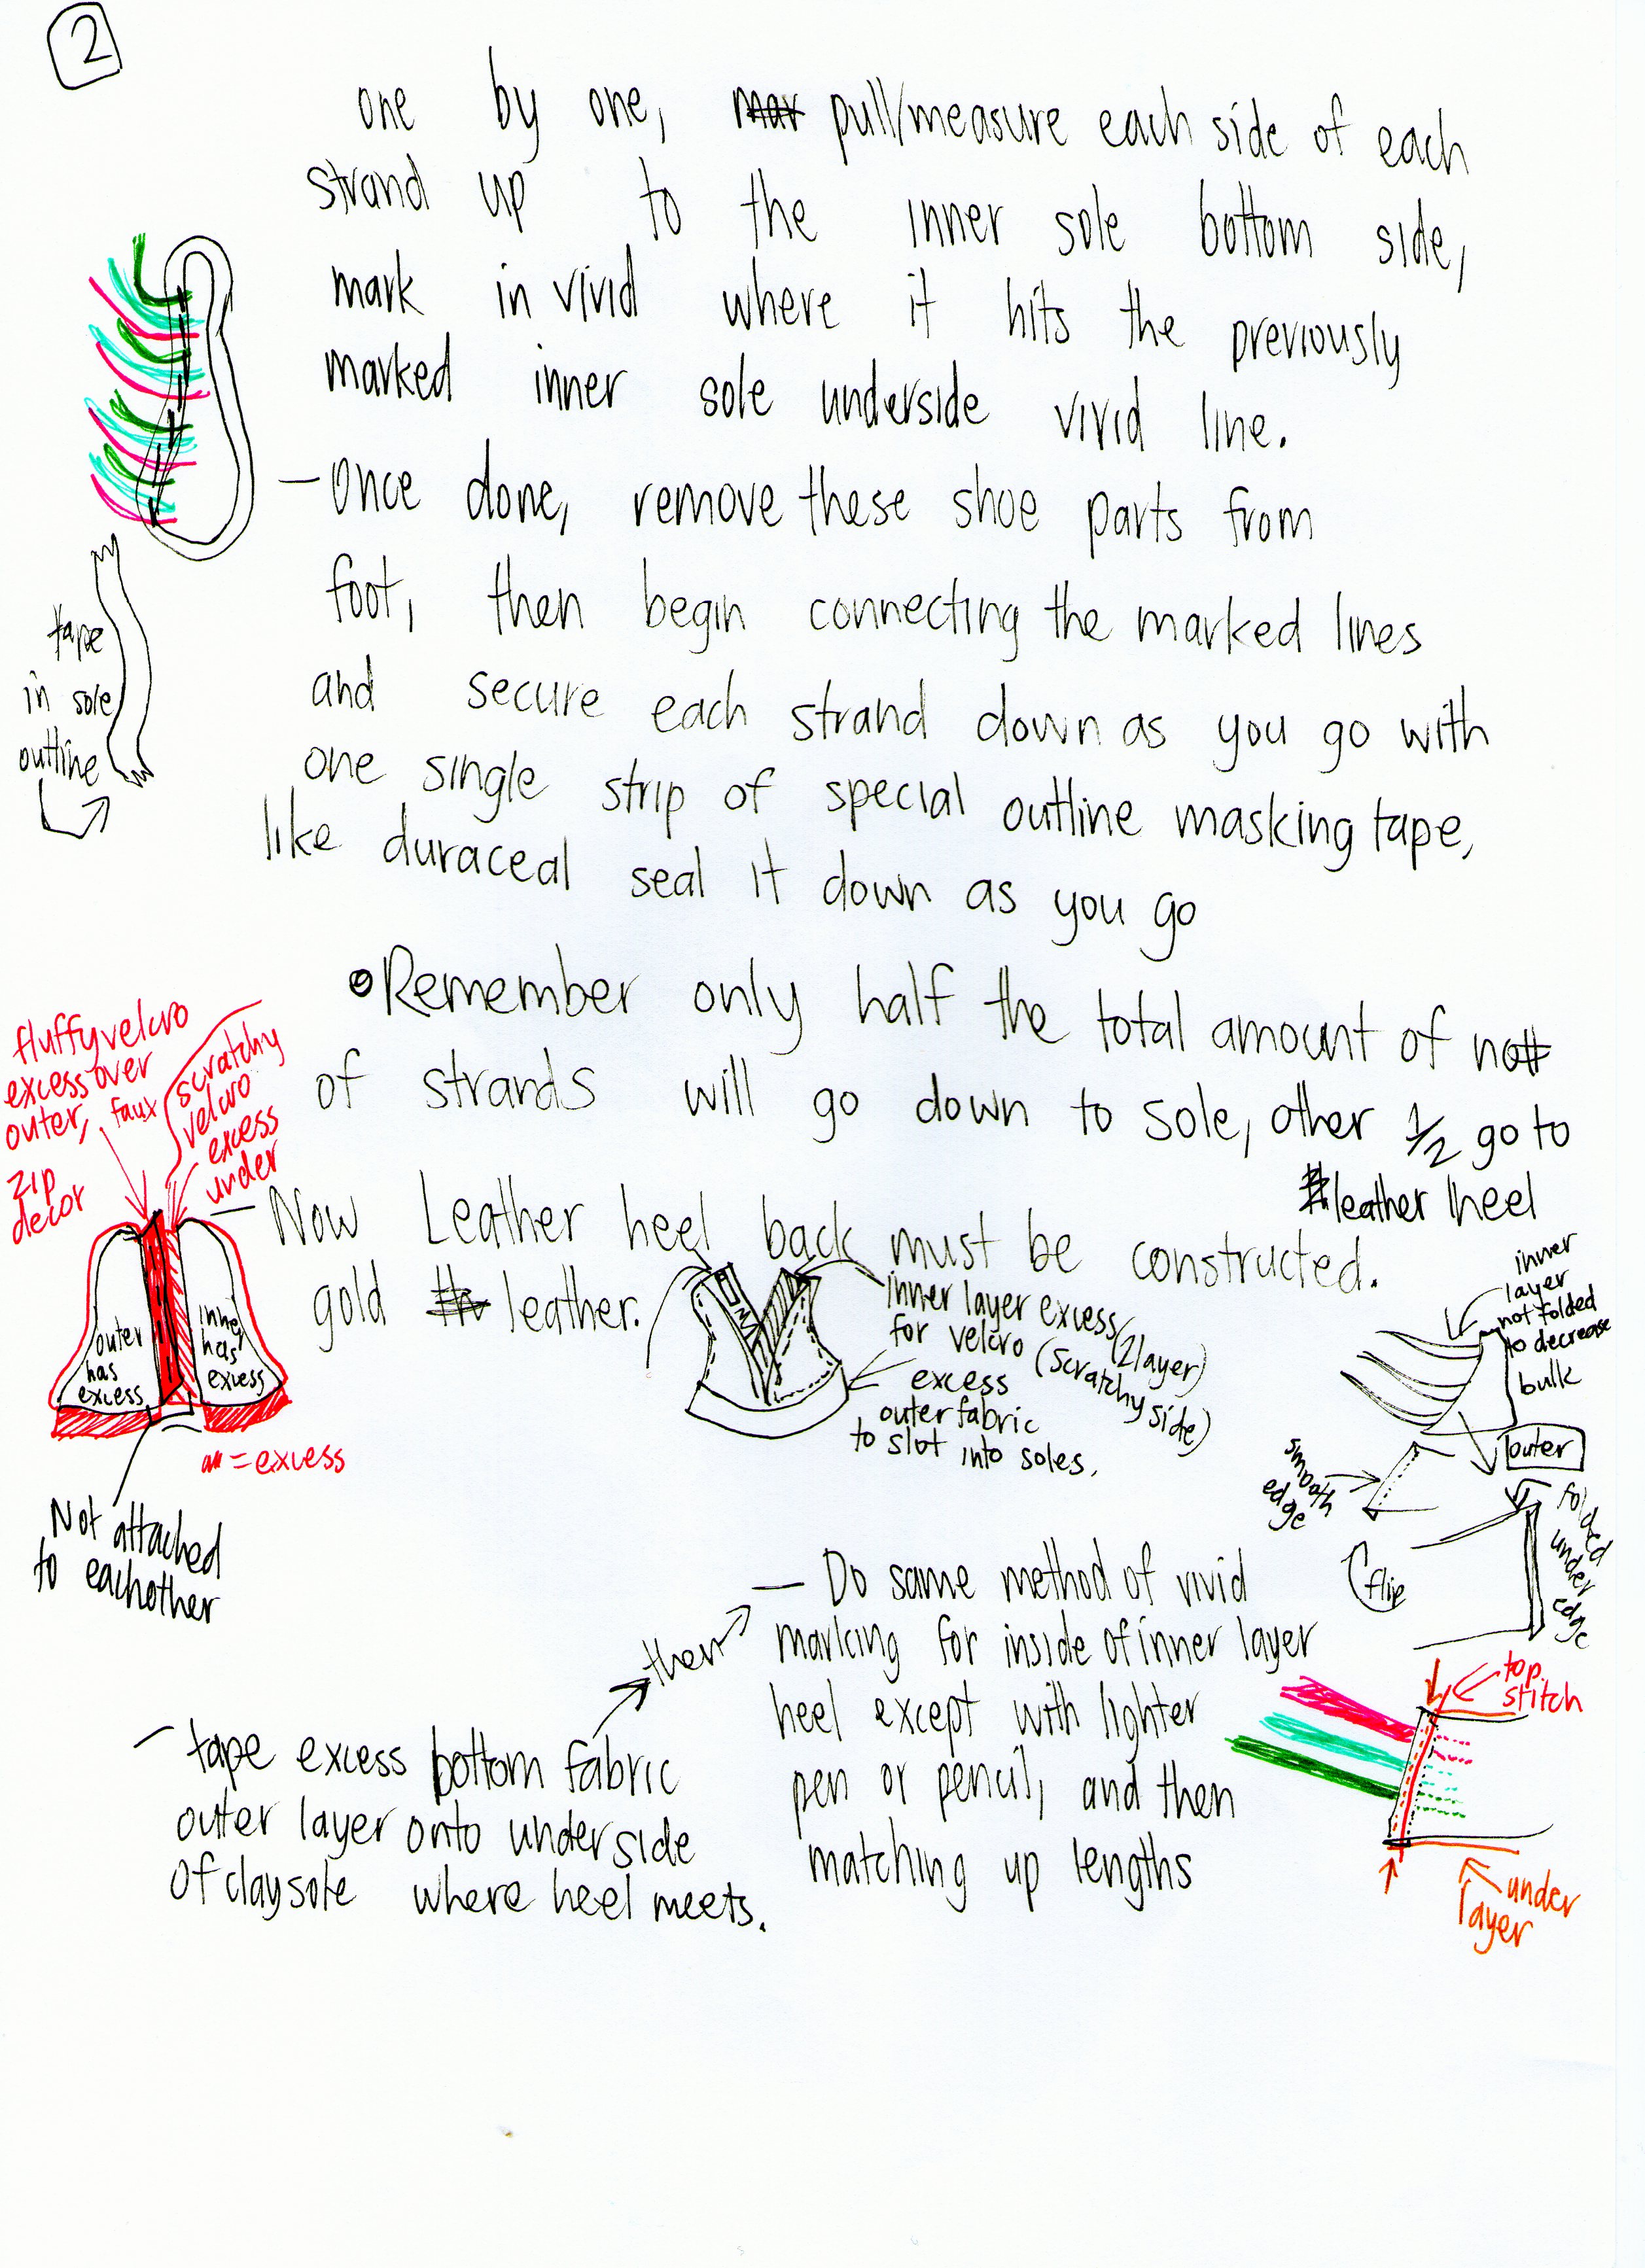 2
one by one, pull/measure each side of each
strand up to the inner sole bottom side,
mark in vivid where it hits the previously
marked inner sole underside vivid line.
– Once done, remove these shoe parts from
foot, then begin connecting the marked lines
and secure each strand down as you go with
one single strip of special outline masking tape,
like duraceal seal it down as you go
tape
in sole
outline
• Remember only half the total amount of
of strands will go down to sole, other 1/2 go to
leather heel
fluffy velcro
excess over
outer, faux
zip
decor
scratchy
velcro
excess
under
outer
has
excess
inner
has
excess
= excess
Not attached
to eachother
– Now Leather heel back must be constructed.
gold leather.
inner layer excess (2 layer)
for velcro (scratchy side)
excess
outer fabric
to slot into soles.
inner
layer
not folded
to decrease
bulk
outer
smooth
edge
folded
under
edge
flip
– tape excess bottom fabric
outer layer onto underside
of clay sole where heel meets.
then
– Do same method of vivid
marking for inside of inner layer
heel except with lighter
pen or pencil, and then
matching up lengths
top
stitch
under
layer